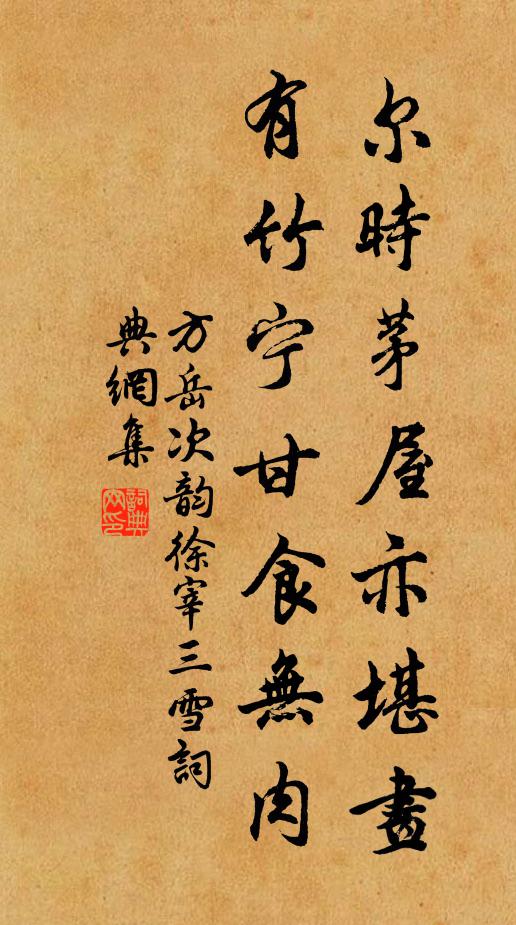 尔時茅屋亦堪畫
有竹宁甘食無肉
方岳次韵徐宰三雪詞
典網集
詞典網印